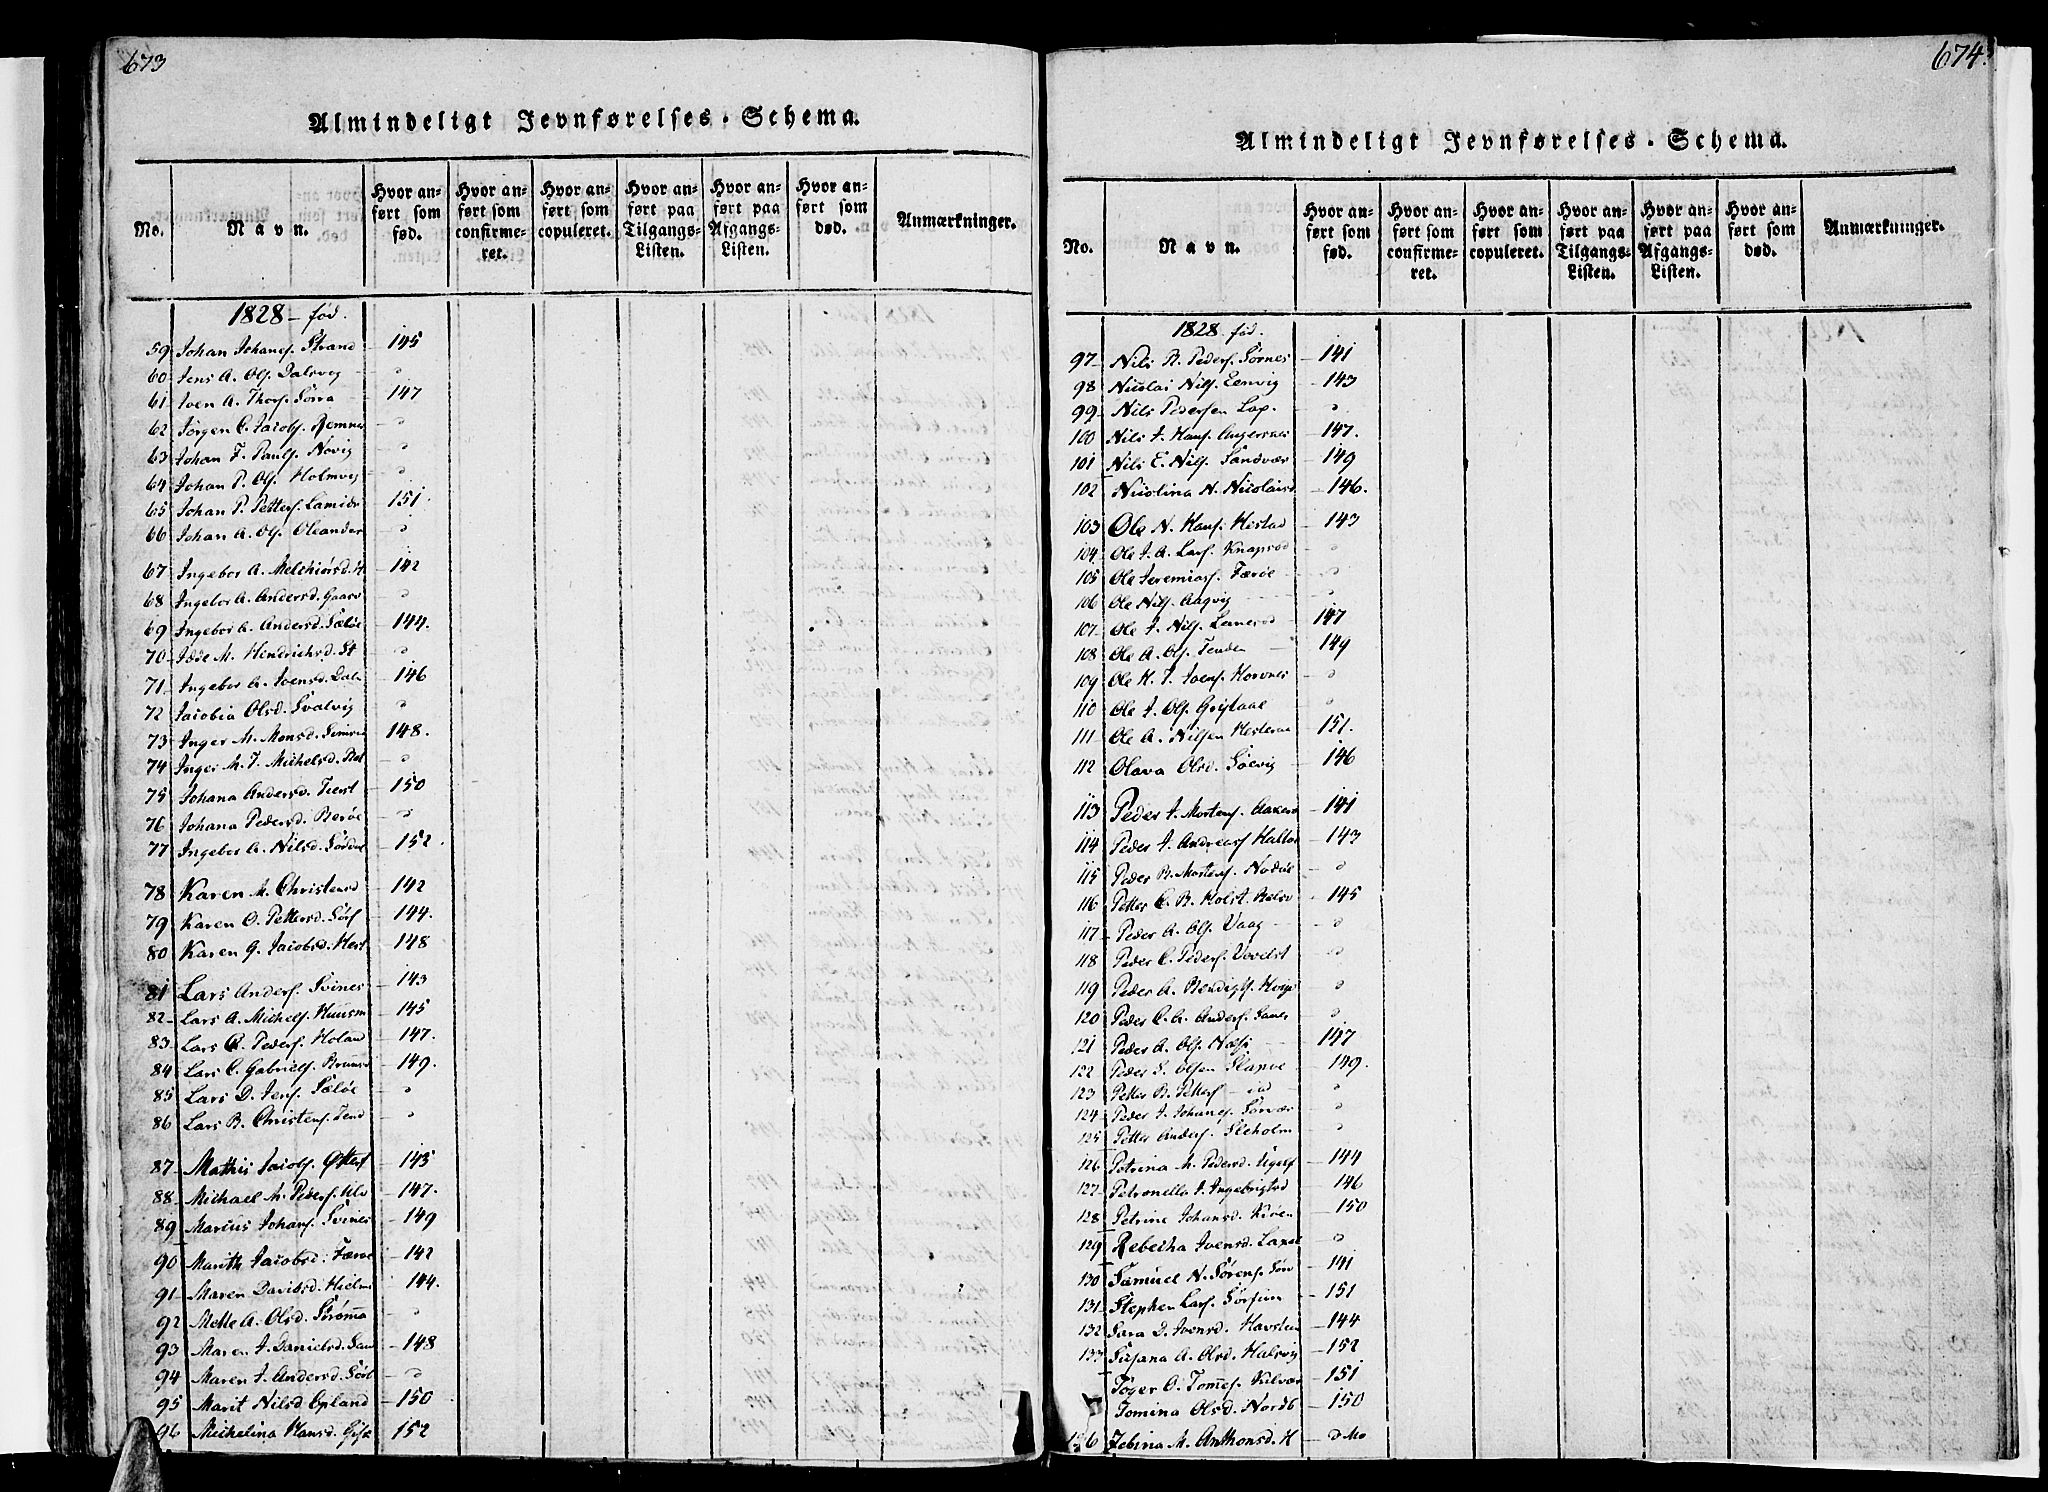 673
Almindeligt Jevnførelses-Schema.
No. Navn. Hvor anført som fød. Hvor anført som confirmeret. Hvor anført som copuleret. Hvor anført paa Tilgangs-Listen. Hvor anført paa Afgangs-Listen. Hvor anført som død. Anmærkninger.
1828 - fød.
59 Johan Johanes. Strand - 145
60 Jens A. Ols. Dalsvig - "
61 Iven A. Thors. Sørra - 147
62 Jørgen C. Jacobs. Remnes - "
63 Johan F. Pauls. Novig - "
64 Johan P. Ols. Holmvig - "
65 Johan P. Petters. - 151.
66 Johan A. Ols. Oleander - "
67 Ingebor A. Melchiorsd. - 142
68 Ingebor A. Andersd. Gaasv - "
69 Ingebor A. Andersd. Sæløe - 144.
70 Idde M. Hendrichsd. St - "
71 Ingebor A. Ivensd. Dals - 146
72 Jacobia Olsd. Svalvig - "
73 Inger M. Monsd. - 148.
74 Inger M. J. Michelsd. - "
75 Johana Andersd. - 150
76 Johana Pedersd. Berøe - "
77 Ingebor A. Nilsd. - 152.
78 Karen M. Christensd - 142
79 Karen O. Pettersd. Sörf - 144.
80 Karen G. Jacobsd. Hest - 148
81 Lars Anders. Svines - 143
82 Lars A. Michels. Huusm - 145
83 Lars A. Peders. Holand - 147.
84 Lars C. Gabriels. - 149.
85 Lars D. Jens. Sæløe - "
86 Lars B. Christens. Tend - "
87 Mathis Jacobs. - 145
88 Michael M. Peders. - 147.
89 Marcus Johans. Svines - 149
90 Marith Jacobsd. Færøe - 142
91 Maren Davidsd. Hielm - 144.
92 Mette A. Olsd. Strømma - "
93 Maren J. Danielsd. San - 148
94 Maren J. Andersd. - "
95 Marit Nilsd. Opland - 150
96 Michelina Hansd. - 152
674.
Almindeligt Jevnførelses-Schema.
No. Navn. Hvor anført som fød. Hvor anført som confirmeret. Hvor anført som copuleret. Hvor anført paa Tilgangs-Listen. Hvor anført paa Afgangs-Listen. Hvor anført som død. Anmærkninger.
1828. fød.
97 Nils R. Peders. Sörnes - 141
98 Nicolai Nils. Eenvig - 143
99 Nils Pedersen Lap. - "
100 Nils J. Hans. Angersnes - 147.
101 Nils E. Nils. Sandvær - 149
102 Nicolina N. Nicolaisd - 146.
103 Ole N. Hans. Hestad - 143
104 Ole J. A. Lars. - "
105 Ole Jeremias. Færöe - "
106 Ole Nils. Aagvig - "
107 Ole J. Nils. - 147
108 Ole A. Ols. Tenden - 149
109 Ole H. J. Ivens. Hornes - "
110 Ole J. Ols. Gristaae - "
111 Ole A. Nilsen - 151.
112 Olava Olsd. Solvig - 146
113 Peder J. Mortens. - 141
114 Peder J. Andreas. - 143
115 Peder B. Mortens. - "
116 Petter C. B. Holst - 145
117 Peder A. Ols. Vaag - "
118 Peder C. Peders. - "
119 Peder A. - "
120 Peder C. A. Anders. - "
121 Peder A. Ols. - 147
122 Peder S. Olsen - 149.
123 Petter B. Petters. - "
124 Peder J. Johanes. Sörvær - "
125 Petter Anders. Sleholm - "
126 Petrina M. Pedersd. - 144
127 Petronella J. Ingebrigtsd - 146
128 Petrine Johansd. - 150
129 Rebecha Ivensd. - "
130 Samuel N. Sörens. - 141
131 Stephen Lars. - 151
132 Sara D. Ivensd. Havsteen - 144
133 A. Olsd. Halsvig - 152
Töger O. - 151
Tomina Olsd. Nordb - 150
136 M. Anthonsd. H - "